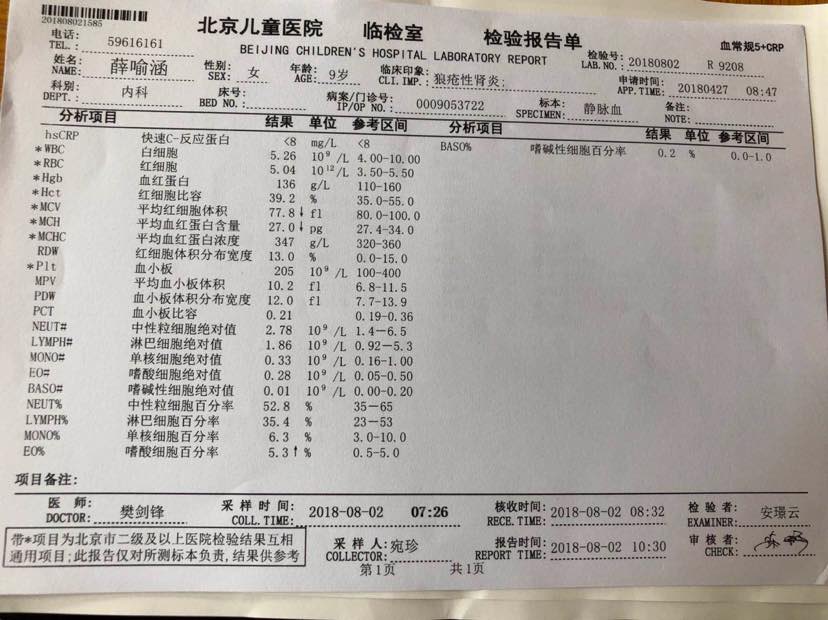 201808021585
北京儿童医院 临检室 检验报告单 血常规5+CRP
BEIJING CHILDREN'S HOSPITAL LABORATORY REPORT
电话: TEL.: 59616161 检验号: LAB.NO.: 20180802 R 9208
姓名: NAME: 薛喻涵 性别: SEX: 女 年龄: AGE: 9岁 临床印象: CLI.IMP.: 狼疮性肾炎; 申请时间: APP.TIME: 20180427 08:47
科别: DEPT.: 内科 床号: BED NO.: 病案/门诊号: IP/OP NO.: 0009053722 标本: SPECIMEN: 静脉血 备注: NOTE:
分析项目 结果 单位 参考区间 分析项目 结果 单位 参考区间
hsCRP 快速C-反应蛋白 <8 mg/L <8 BASO% 嗜碱性细胞百分率 0.2 % 0.0-1.0
*WBC 白细胞 5.26 10⁹ /L 4.00-10.00
*RBC 红细胞 5.04 10¹² /L 3.50-5.50
*Hgb 血红蛋白 136 g/L 110-160
*Hct 红细胞比容 39.2 % 35.0-55.0
*MCV 平均红细胞体积 77.8↓ fl 80.0-100.0
*MCH 平均血红蛋白含量 27.0↓ pg 27.4-34.0
*MCHC 平均血红蛋白浓度 347 g/L 320-360
RDW 红细胞体积分布宽度 13.0 % 0.0-15.0
*Plt 血小板 205 10⁹ /L 100-400
MPV 平均血小板体积 10.2 fl 6.8-11.5
PDW 血小板体积分布宽度 12.0 fl 7.7-13.9
PCT 血小板比容 0.21 0.19-0.36
NEUT# 中性粒细胞绝对值 2.78 10⁹ /L 1.4-6.5
LYMPH# 淋巴细胞绝对值 1.86 10⁹ /L 0.92-5.3
MONO# 单核细胞绝对值 0.33 10⁹ /L 0.16-1.00
EO# 嗜酸细胞绝对值 0.28 10⁹ /L 0.05-0.50
BASO# 嗜碱性细胞绝对值 0.01 10⁹ /L 0.00-0.20
NEUT% 中性粒细胞百分率 52.8 % 35-65
LYMPH% 淋巴细胞百分率 35.4 % 23-53
MONO% 单核细胞百分率 6.3 % 3.0-10.0
EO% 嗜酸细胞百分率 5.3↑ % 0.5-5.0
项目备注:
医 师: DOCTOR: 樊剑锋 采 样 时 间: COLL.TIME: 2018-08-02 07:26 核收时间: RECE.TIME: 2018-08-02 08:32 检 验 者: EXAMINER: 安璟云
带*项目为北京市二级及以上医院检验结果互相
通用项目;此报告仅对所测标本负责,结果供参考
采 样 人: COLLECTOR: 宛珍 报告时间: REPORT TIME: 2018-08-02 10:30 审 核 者: CHECK:
第1页 共1页